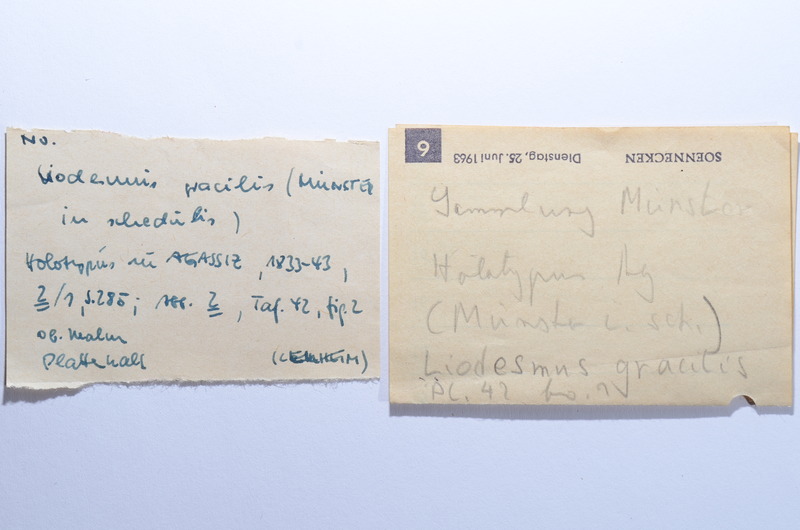 No.
Liodesmus gracilis (MÜNSTER
in schedulis)
Holotypus zu AGASSIZ, 1833-43,
2/1, S.285; 2, Taf. 42, fig. 2
ob. Malm
Plattenkalk (KELHEIM)
6 Dienstag, 25. Juni 1963 SOENNECKEN
Sammlung Münster
Holotypus Ag
(Münster i. sch.)
Liodesmus gracilis
Pl. 42